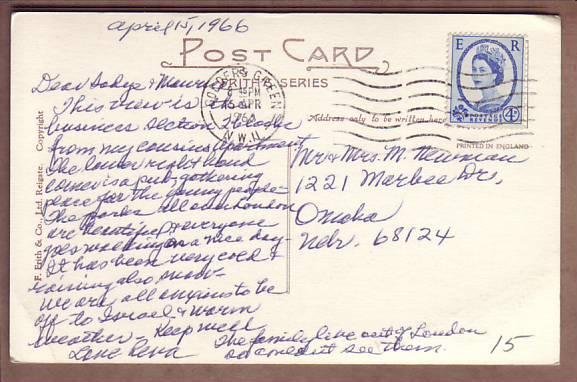 April 15, 1966
POST CARD
FRITH'S SERIES
E R
4D
POSTAGE REVENUE
GOLDERS GREEN
15 APR
1966
N.W.11
Address only to be written here
PRINTED IN ENGLAND
F. Frith & Co., Ltd. Reigate. Copyright
Dear Sadye & Maurice
This view is the
business section a block
from my cousins apartment
The lower right hand
corner is a pub - gathering
place for the young people -
The parks all over London
are beautiful & everyone
goes walking on a nice day -
It has been very cold &
raining also snow -
We are all anxious to be
off to Israel & warm
weather - Keep well
Love Reva
The family live out of London
so couldn't see them.
Mr & Mrs. M. Newman
1221 Marbee Dr.,
Omaha
Nebr. 68124
15